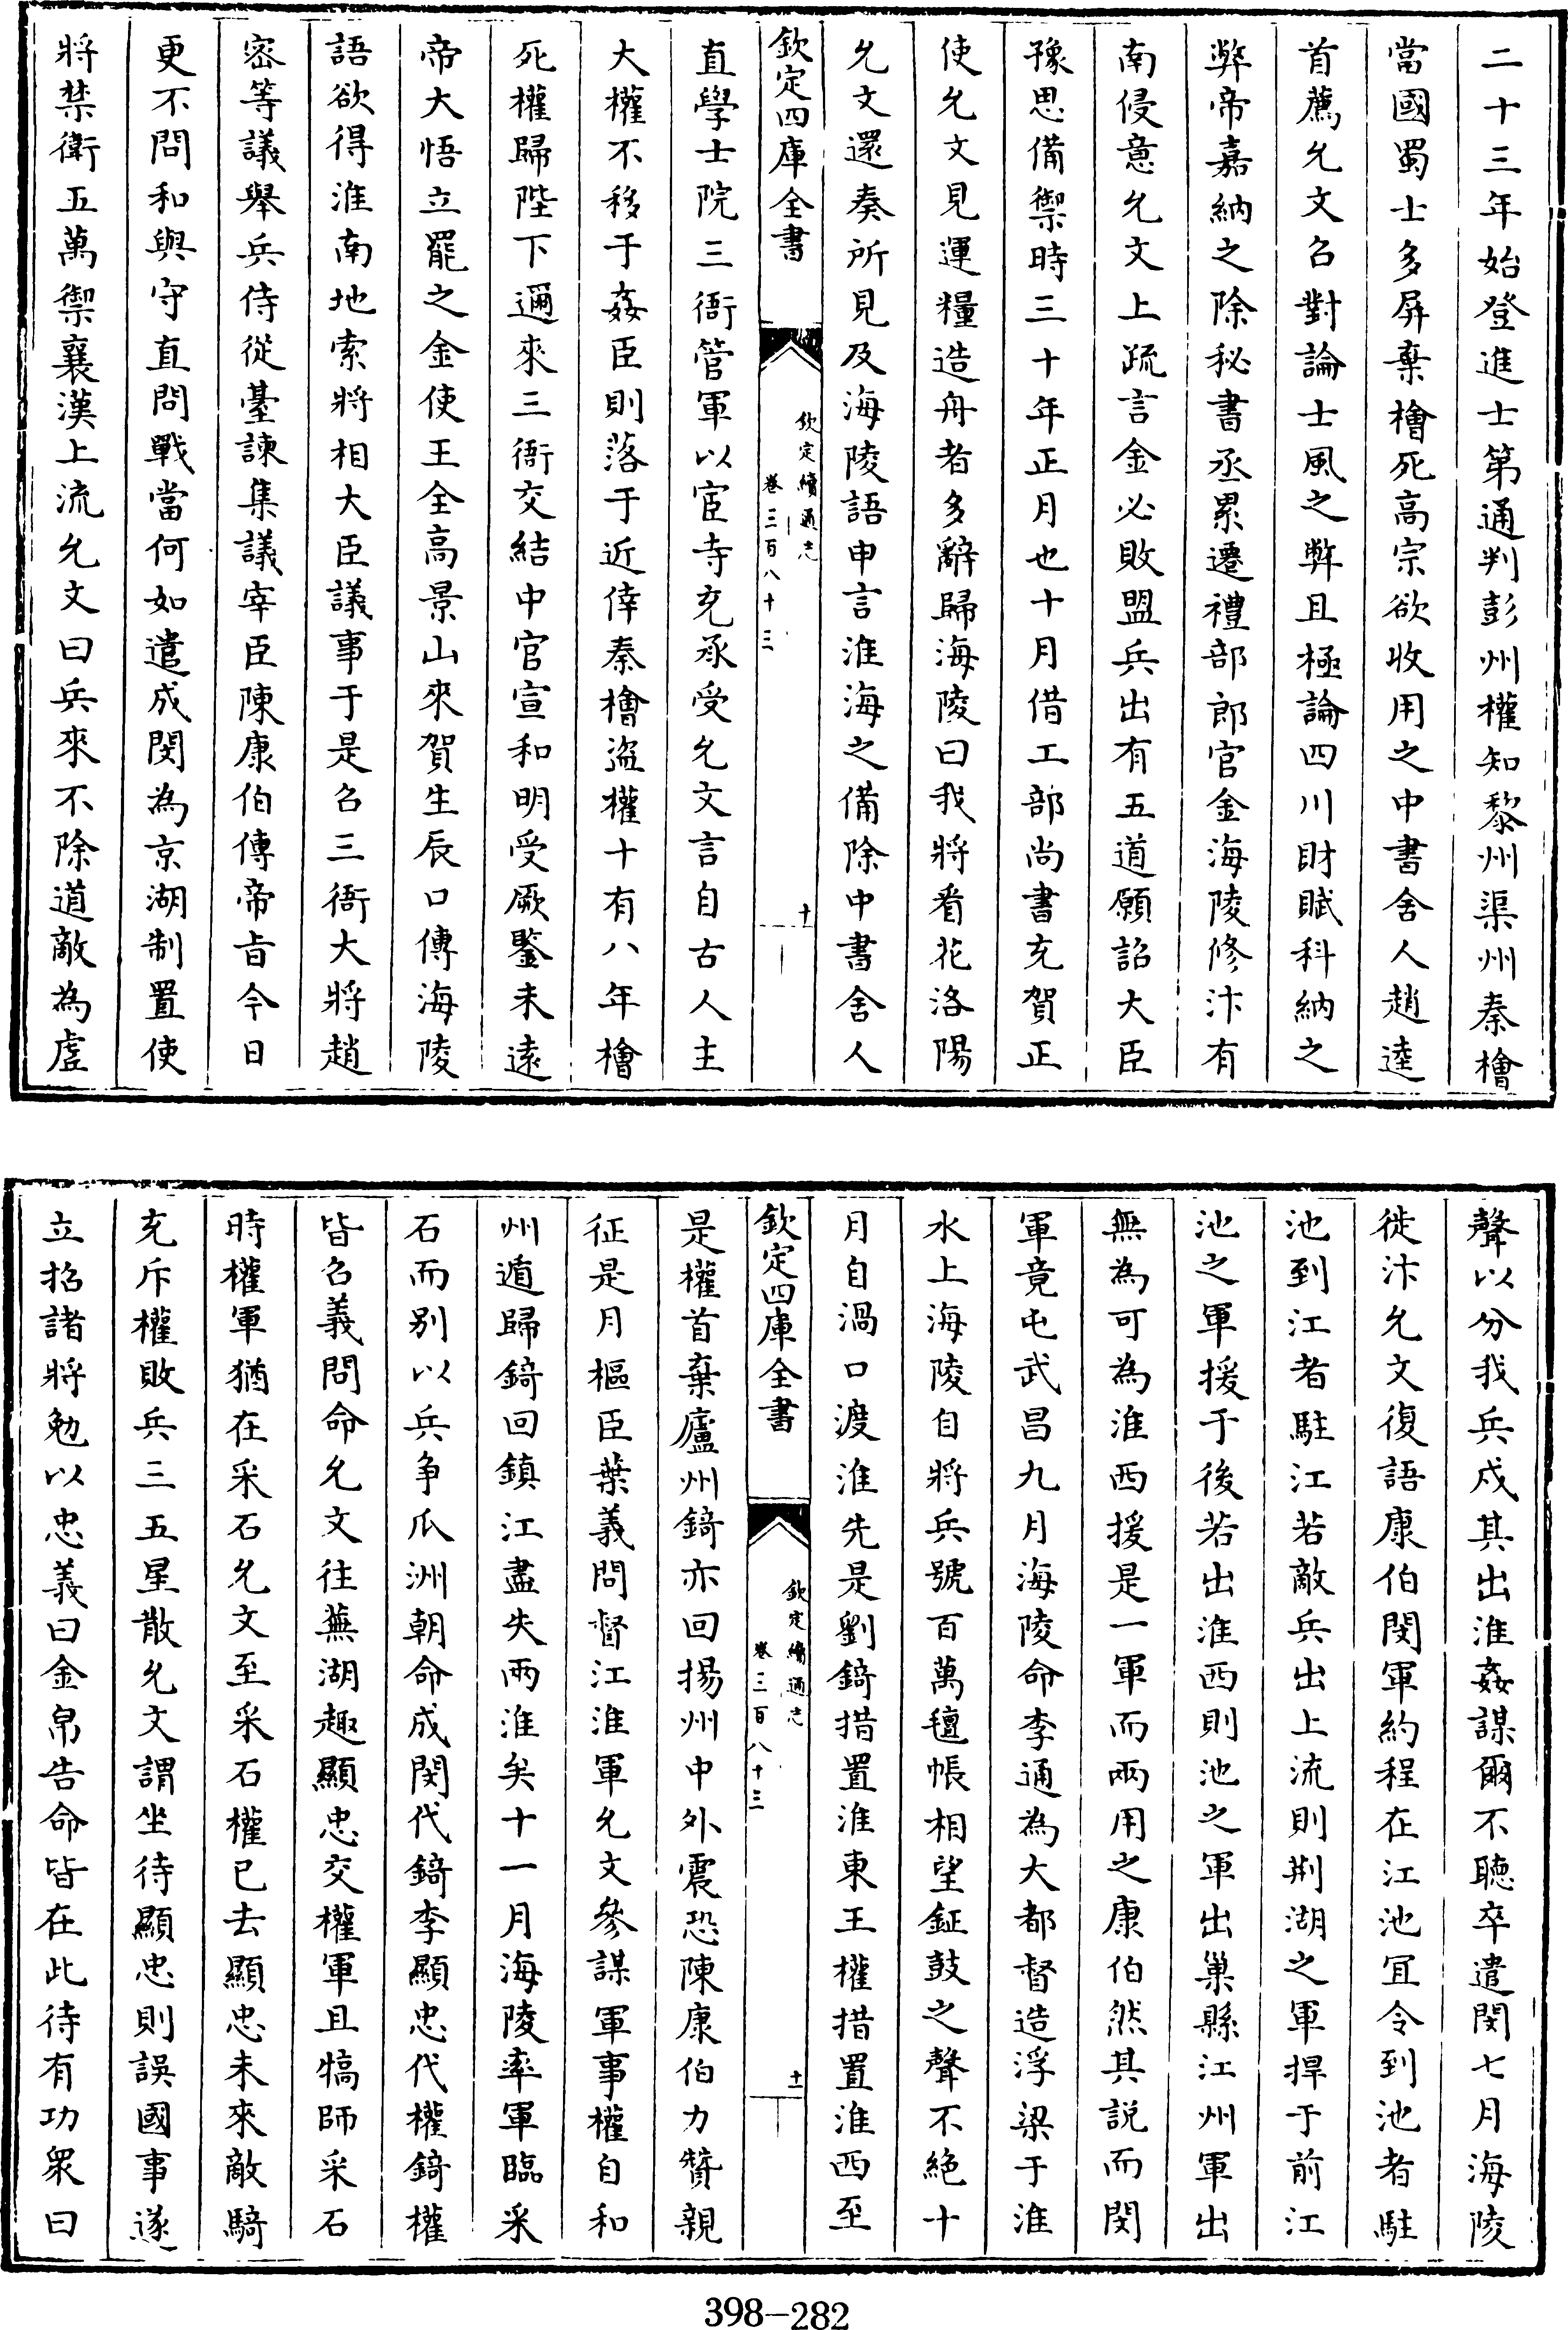 二十三年始登進士第通判彭州權知黎州渠州秦檜
當國蜀士多屏棄檜死高宗欲收用之中書舍人趙逵
首薦允文召對論士風之弊且極論四川財賦科納之
弊帝嘉納之除秘書丞累遷禮部郎官金海陵修汴有
南侵意允文上疏言金必敗盟兵出有五道願詔大臣
豫思備禦時三十年正月也十月借工部尚書充賀正
使允文見運糧造舟者多辭歸海陵曰我將看花洛陽
允文還奏所見及海陵語申言淮海之備除中書舍人
欽定四庫全書
欽定續通志
卷三百八十三
十
直學士院三衙管軍以宦寺充承受允文言自古人主
大權不移于姦臣則落于近倖秦檜盜權十有八年檜
死權歸陛下邇來三衙交結中官宣和明受厥鑒未遠
帝大悟立罷之金使王全高景山來賀生辰口傳海陵
語欲得淮南地索將相大臣議事于是召三衙大將趙
密等議舉兵侍從臺諫集議宰臣陳康伯傳帝旨今日
更不問和與守直問戰當何如遣成閔為京湖制置使
將禁衛五萬禦襄漢上流允文曰兵來不除道敵為虛
聲以分我兵成其出淮姦謀爾不聽卒遣閔七月海陵
徙汴允文復語康伯閔軍約程在江池宜令到池者駐
池到江者駐江若敵兵出上流則荆湖之軍捍于前江
池之軍援于後若出淮西則池之軍出巢縣江州軍出
無為可為淮西援是一軍而兩用之康伯然其說而閔
軍竟屯武昌九月海陵命李通為大都督造浮梁于淮
水上海陵自將兵號百萬氊帳相望鉦鼓之聲不絕十
月自渦口渡淮先是劉錡措置淮東王權措置淮西至
欽定四庫全書
欽定續通志
卷三百八十三
十一
是權首棄廬州錡亦回揚州中外震恐陳康伯力贊親
征是月樞臣葉義問督江淮軍允文參謀軍事權自和
州遁歸錡回鎮江盡失兩淮矣十一月海陵率軍臨采
石而别以兵争瓜洲朝命成閔代錡李顯忠代權錡權
皆召義問命允文往蕪湖趣顯忠交權軍且犒師采石
時權軍猶在采石允文至采石權已去顯忠未來敵騎
充斥權敗兵三五星散允文謂坐待顯忠則誤國事遂
立招諸將勉以忠義曰金帛告命皆在此待有功衆曰
398-282